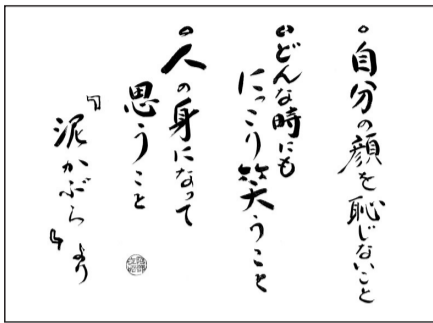 ○自分の顔を恥じないこと
○どんな時にも
にっこり笑うこと
○人の身になって
思うこと
『泥かぶら』より